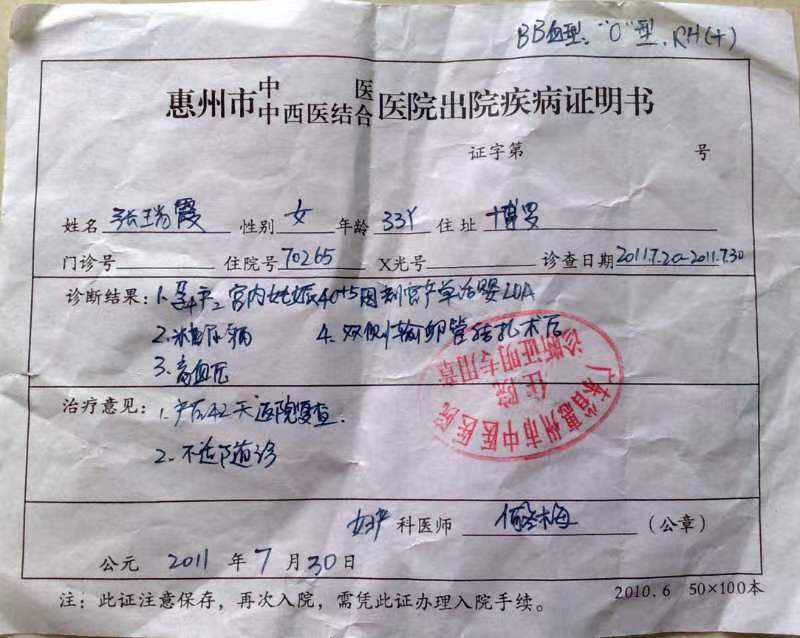 BB血型:"O"型,RH(+)
惠州市中医中西医结合医院出院疾病证明书
证字第 号
姓名 张瑞霞 性别 女 年龄 33Y 住址 博罗
门诊号 住院号 70265 X光号 诊查日期 2011.7.20-2011.7.30
诊断结果:1. 孕4产2 宫内妊娠40+5周剖宫产单活婴LOA
2. 糖尿病 4. 双侧输卵管结扎术后
3. 高血压
广东省惠州市中医医院
住院
诊断证明专用章
治疗意见:1. 产后42天返院复查.
2. 不适随诊
妇产 科医师 (公章)
公元 2011 年 7 月 30 日
注:此证注意保存,再次入院,需凭此证办理入院手续。
2010.6 50×100本